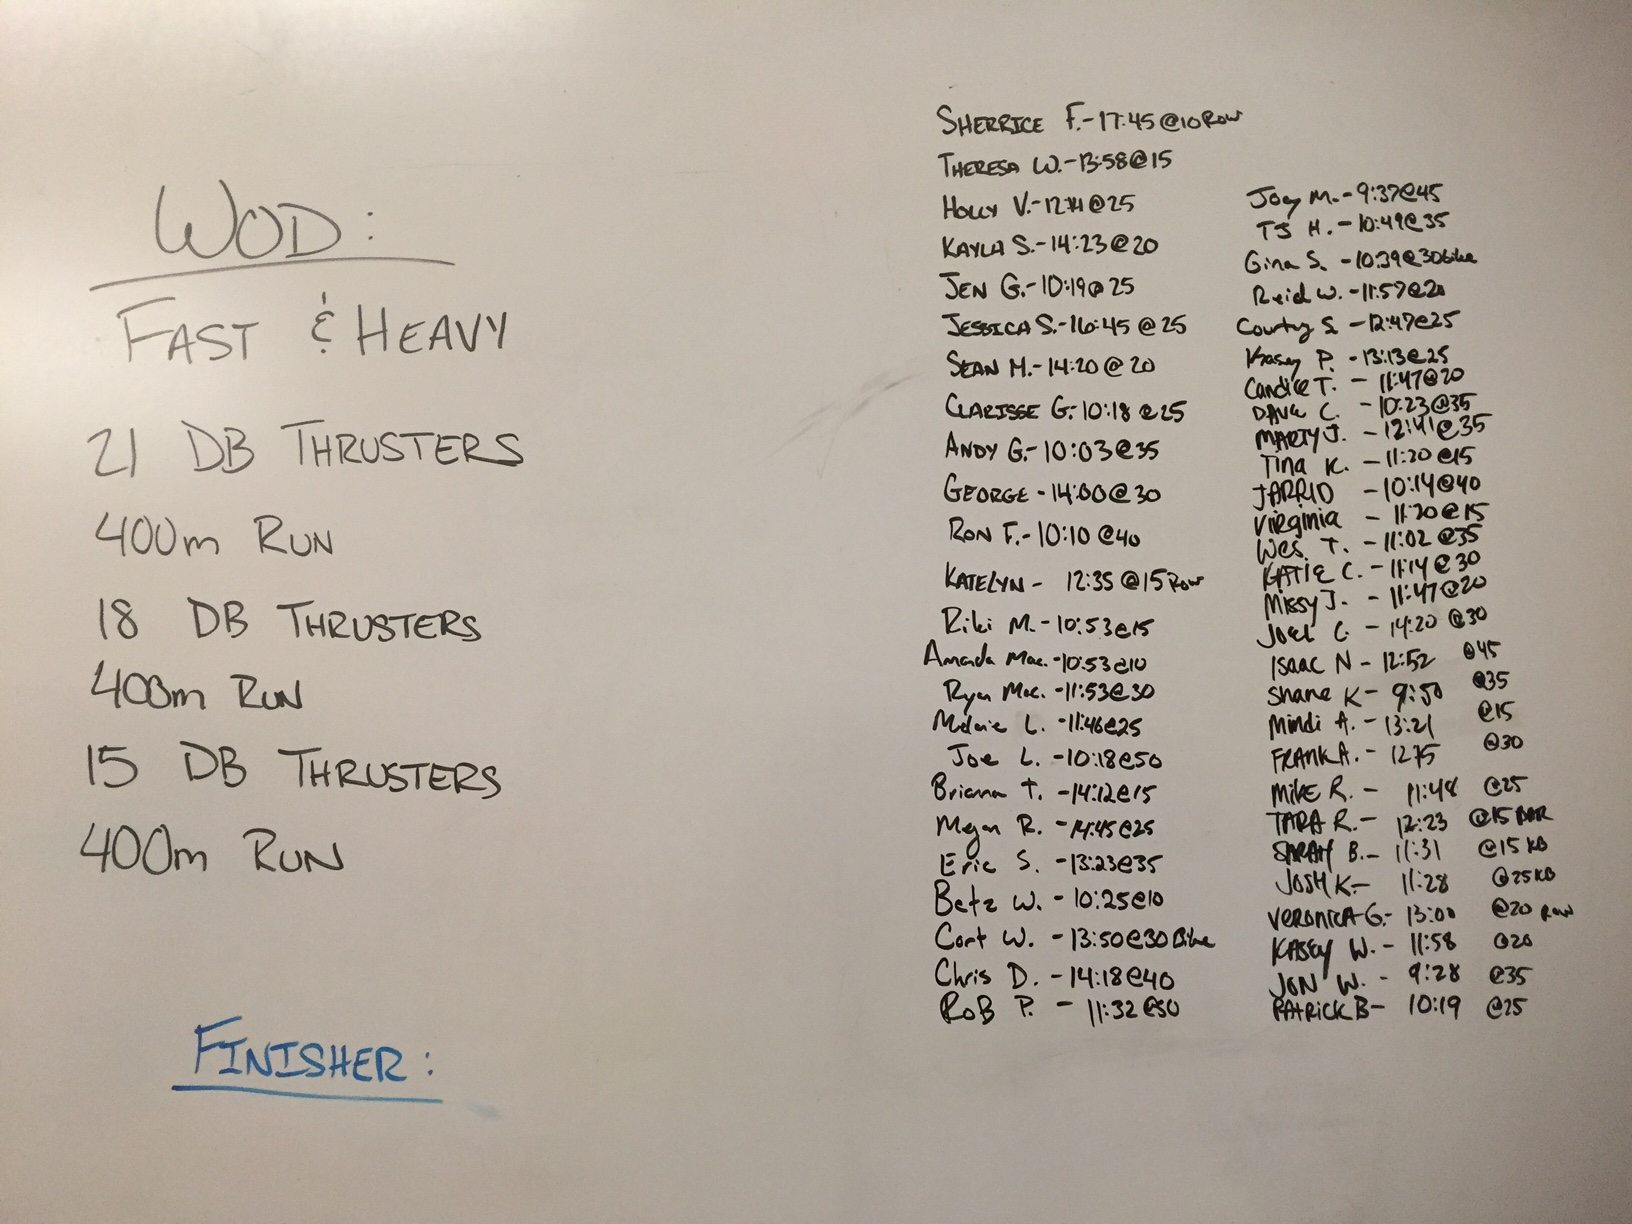 WOD:
FAST & HEAVY
21 DB THRUSTERS
400m RUN
18 DB THRUSTERS
400m RUN
15 DB THRUSTERS
400m RUN
FINISHER:
SHERRICE F.-17:45@10 Row
THERESA W.-13:58@15
HOLLY V.-12:11@25
KAYLA S.-14:23@20
JEN G.-10:19@25
JESSICA S.-16:45@25
SEAN M.-14:20@20
CLARISSE G.-10:18@25
ANDY G.-10:03@35
GEORGE-14:00@30
RON F.-10:10@40
KATELYN- 12:35@15 Row
Riki M.-10:53@15
Amanda Mac.-10:53@10
Ryan Mac.-11:53@30
Melanie L. -11:46@25
Joe L. -10:18@50
Brianna T. -14:12@15
Megan R. -14:45@25
Eric S. -13:23@35
Betz W. -10:25@10
Cort W. -13:50@30 Bike
Chris D. -14:18@40
RoB P. - 11:32@50
Joey M.-9:37@45
TJ H.-10:49@35
Gina S. -10:39@30 bike
Reid W.-11:57@20
Courtney S. -12:47@25
Kasey P. -13:13@25
Candice T. - 11:47@20
DAVE C. - 10:23@35
MARTY J. - 12:41@35
Tina K. - 11:20@15
JARRID - 10:14@40
Virginia - 11:20@15
Wes. T. - 11:02@35
KATIE C.-11:14@30
Missy J. - 11:47@20
Joel C. - 14:20@30
ISAAC N - 12:52 @45
Shane K - 9:50 @35
Mindi A. - 13:21 @15
FRANK A. - @30
MIKE R. - 11:48 @25
TARA R. - 12:23 @15 BAR
SARAH B. - 11:31 @15 KB
JOSH K- 11:28 @25 KB
VERONICA G.- 13:00 @20 Row
KASEY W. - 11:58 @20
JON W. - 9:28 @35
PATRICK B- 10:19 @25